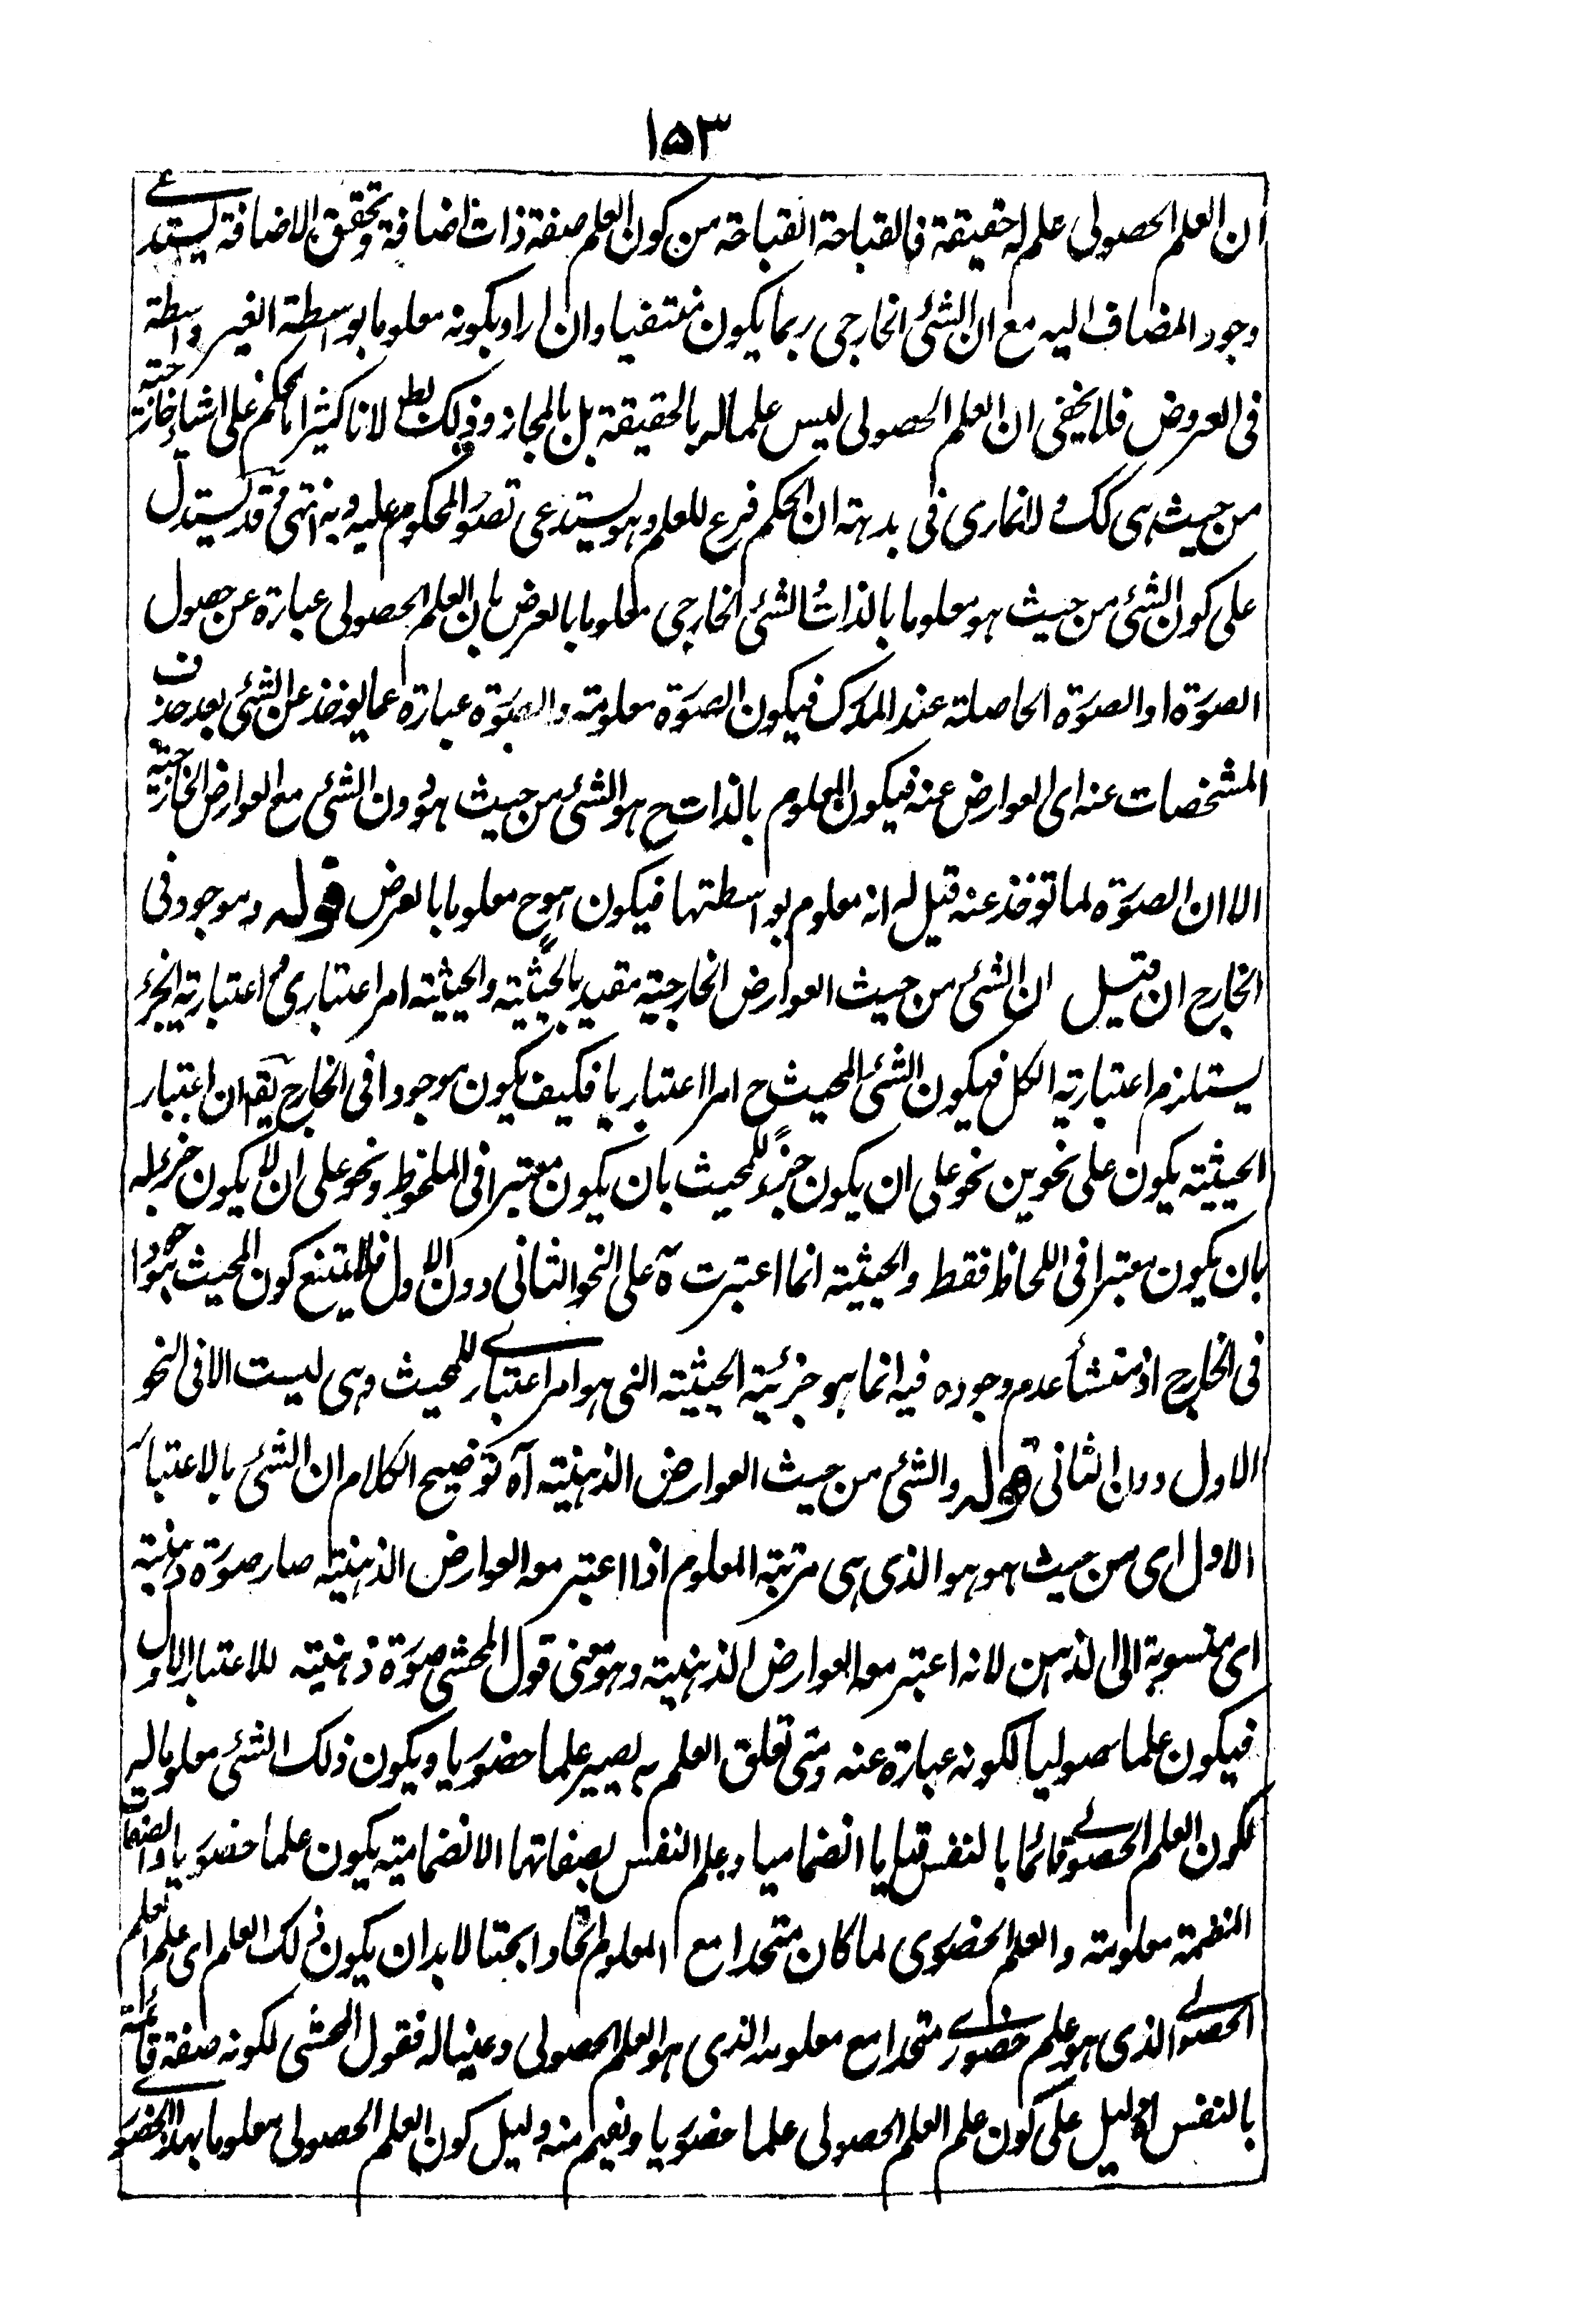 ١٥٣
ان العلم الحصولى علم له حقيقة فالقباحة القباحة من كون العلم صفة ذات اضافة وتحقق الاضافة يستدعى
وجود المضاف اليه مع ان الشئ الخارجى ربما يكون منتفيا وان اراد بكونه معلوما بواسطة الغير واسطة
فى العروض فلا يخفى ان العلم الحصولى ليس علما له بالحقيقة بل بالمجاز وذلك بط لانا كثيرا ما نحكم على اشياء خارجية
من حيث هى كك ولا نمارى فى بدهته ان الحكم فرع للعلم وهو يستدعى تصور المحكوم عليه وبه انتهى وقد يستدل
على كون الشئ من حيث هو معلوما بالذات والشئ الخارجى معلوما بالعرض بان العلم الحصولى عبارة عن حصول
الصورة او الصورة الحاصلة عند المدرك فيكون الصورة معلومة والصورة عبارة عما يؤخذ عن الشئ بعد حذف
المشخصات عنه اى العوارض عنه فيكون المعلوم بالذات ح هو الشئ من حيث هو دون الشئ مع العوارض الخارجية
الا ان الصورة لما تؤخذ عنه قيل له انه معلوم بواسطتها فيكون هو ح معلوما بالعرض قوله وموجود فى
الخارج ان قيل ان الشئ من حيث العوارض الخارجية مقيد بالحيثية والحيثية امر اعتبارى واعتبارية الجزء
يستلزم اعتبارية الكل فيكون الشئ المحيث ح امرا اعتباريا فكيف يكون موجودا فى الخارج يقم ان اعتبار
الحيثية يكون على نحوين نحو على ان يكون جزءً للمحيث بان يكون معتبرا فى الملحوظ ونحو على ان لا يكون جزء له
بان يكون معتبرا فى اللحاظ فقط والحيثية انما اعتبرت ة على النحو الثانى دون الاول فلا يمتنع كون المحيث موجودا
فى الخارج اذ منشأ عدم وجوده فيه انما هو جزئية الحيثية التى هو امر اعتبارى للمحيث وهى ليست الا فى النحو
الاول دون الثانى قوله والشئ من حيث العوارض الذهنية آه توضيح الكلام ان الشئ بالاعتبار
الاول اى من حيث هو هو الذى هى مرتبة المعلوم اذا اعتبر معه العوارض الذهنية صار صورة ذهنية
اى منسوبة الى الذهن لانه اعتبر معه العوارض الذهنية وهو معنى قول المحشى صورة ذهنية للاعتبار الاول
فيكون علما حصوليا لكونه عبارة عنه ومتى تعلق العلم به يصير علما حضوريا ويكون ذلك الشئ معلوما له
لكون العلم الحصولى قائما بالنفس قياما انضماميا وعلم النفس بصفاتها الانضمامية يكون علما حضوريا والصفات
المنضمة معلومة والعلم الحضورى لما كان متحدا مع المعلوم اتحادا بحتا لا بد ان يكون ذلك العلم اى علم العلم
الحصولى الذى هو علم حضورى متحدا مع معلومه الذى هو العلم الحصولى وعينا له فقول المحشى لكونه صفة قائمة
بالنفس الخ دليل على كون علم العلم الحصولى علما حضوريا ويفهم منه دليل كون العلم الحصولى معلوما بهذا الحضور